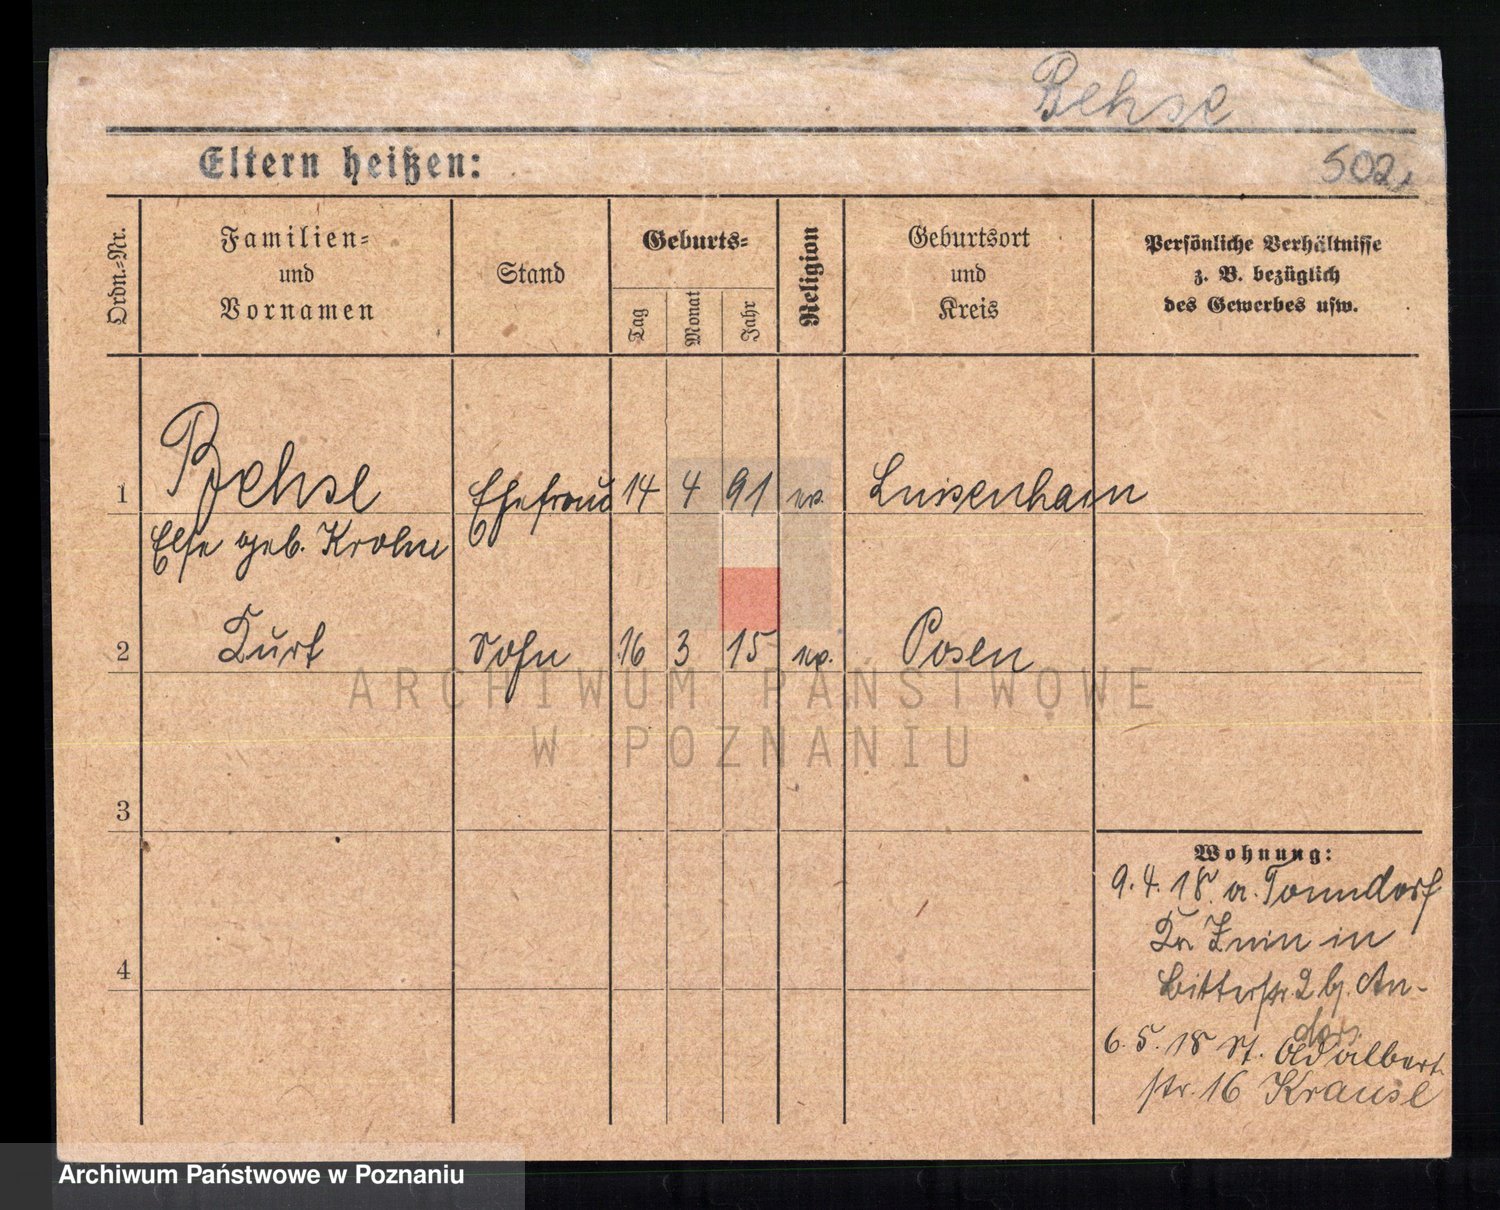 Behse
Eltern heißen:
502.
Ordn.-Nr.
Familien-
und
Vornamen
Stand
Geburts-
Tag
Monat
Jahr
Religion
Geburtsort
und
Kreis
Persönliche Verhältnisse
z. B. bezüglich
des Gewerbes usw.
1 Behse Ehefrau 14 4 91 ev. Luisenhain
Else geb. Krohn
2 Kurt Sohn 16 3 15 ev. Posen
3
4
Wohnung:
9. 4. 18. a. Tonndorf
Kr. Znin in
Bitterstr. 2 bj. An-
ders.
6. 5. 18 St. Adalbert
str. 16 Krause
ARCHIWUM PAŃSTWOWE
W POZNANIU
Archiwum Państwowe w Poznaniu